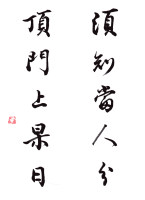 須知當人分
頂門上杲日